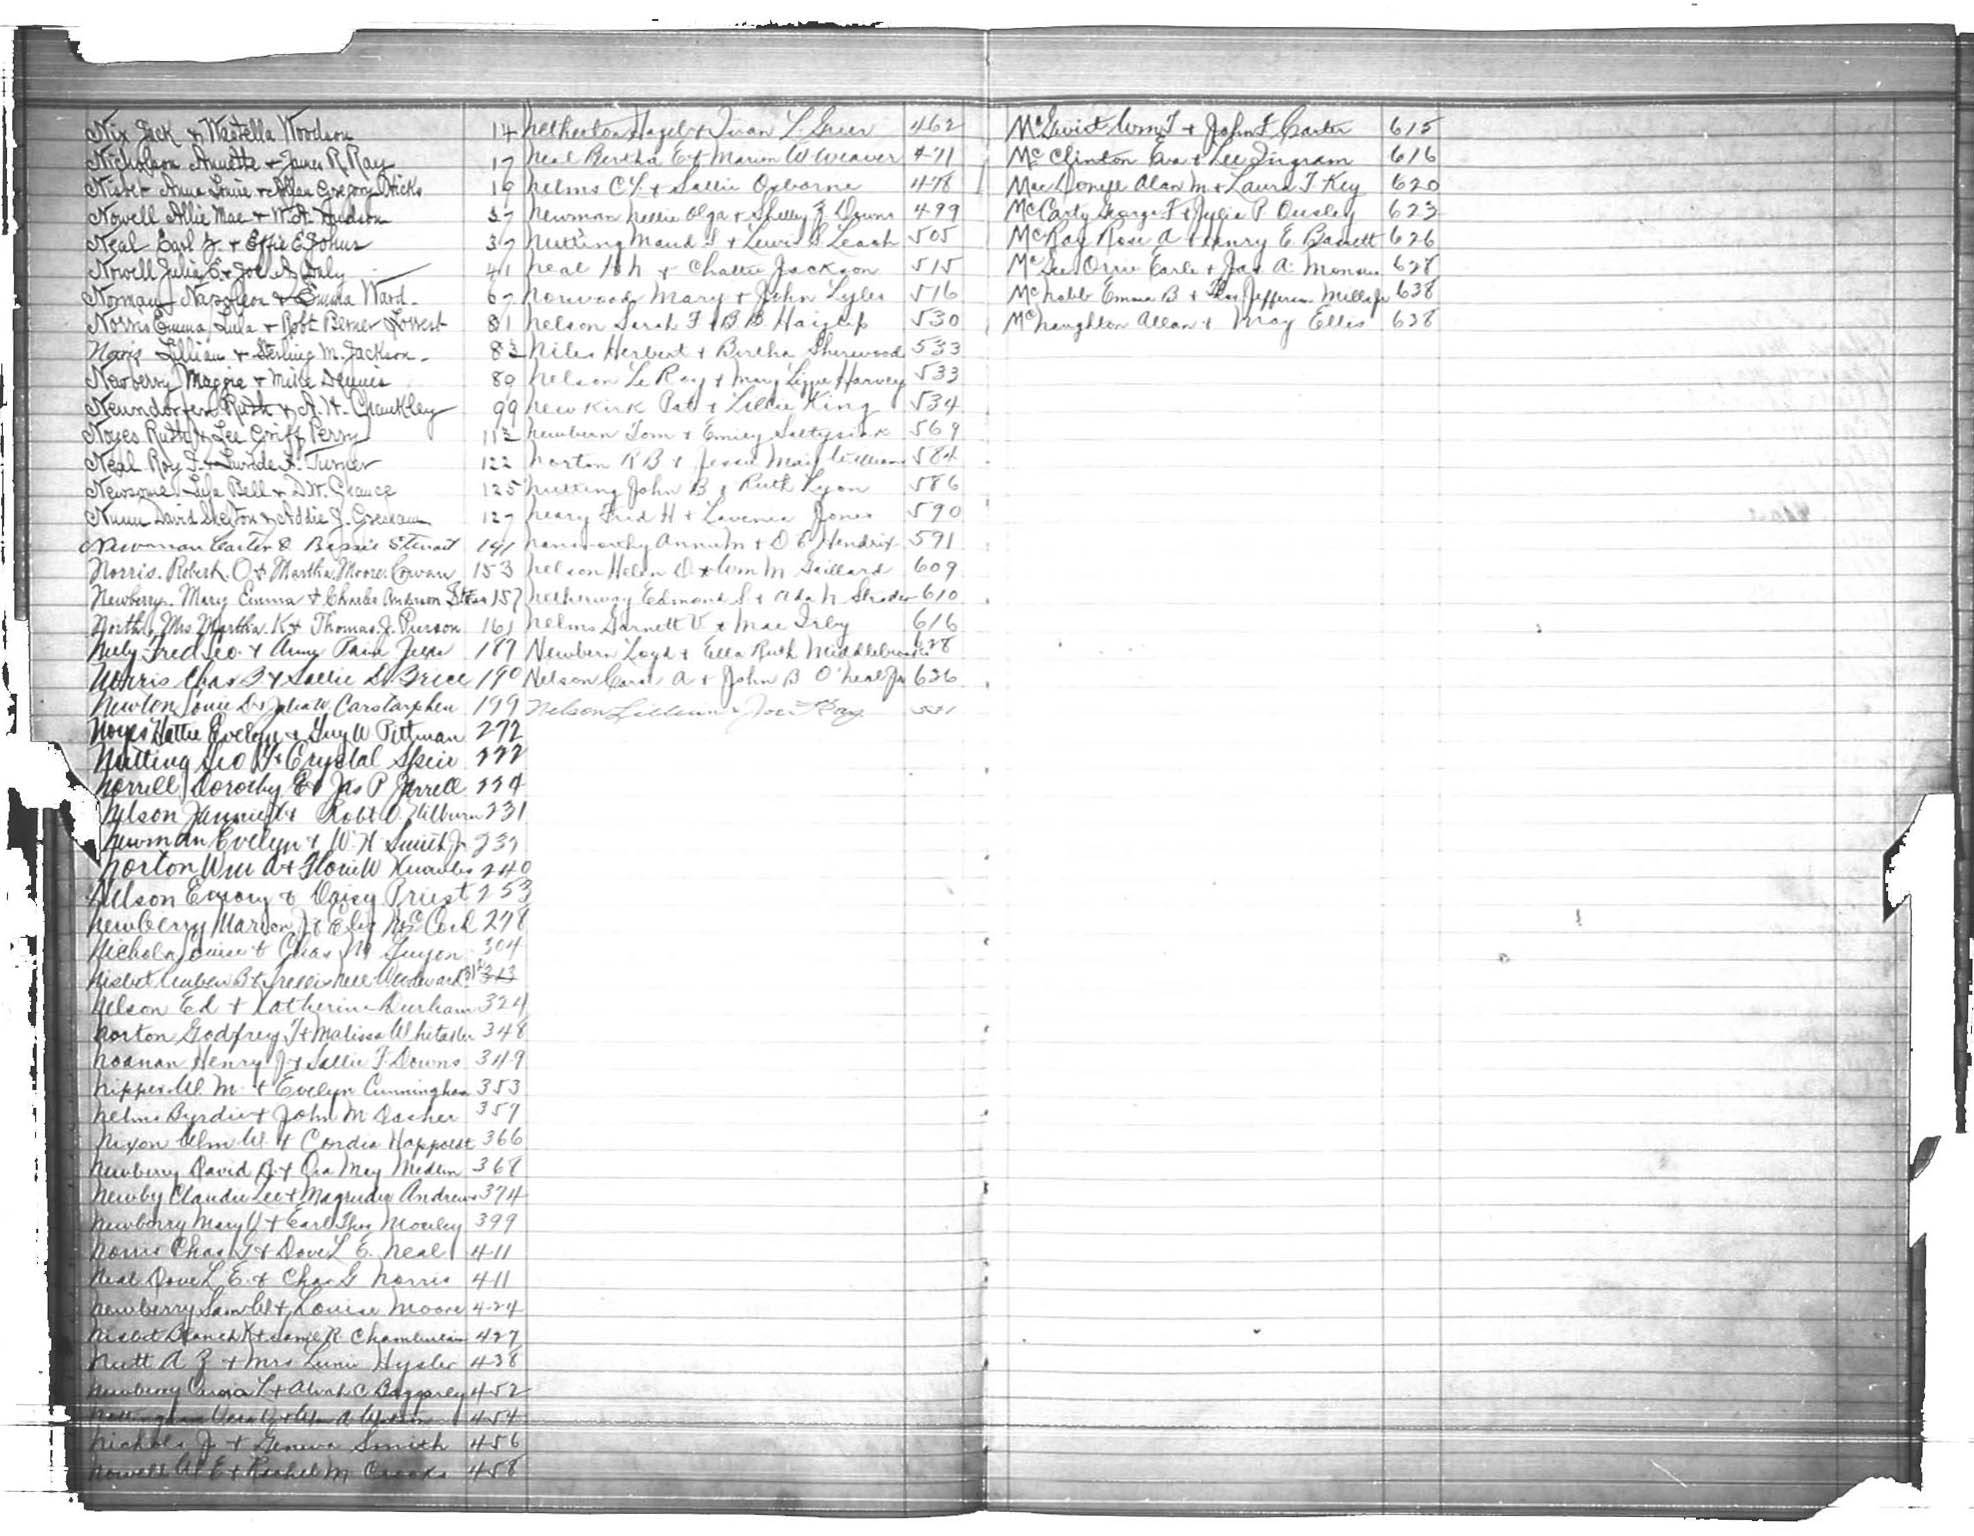 Nix Jack & Wastella Woodson 14
Nicholson Annette & James R. Ray 17
Nisbet Anna Louise & Allen Gregory Hicks 19
Nowell Allie Mae & W.A. Hudson 37
Neal Earl J. & Effie E. Johns 37
Nowell Julia E. & Joe A. Daly 41
Norman Napoleon & Emma Ward. 67
Norris Emma Lula & Robt Berner Forrest 81
Norris Lillian & Sterling M. Jackson. 83
Newberry Maggie & Mike Dennis 89
Neundorfer Ruth & A.H. Chaukley 99
Noyes Ruth & Lee Griff Perry 112
Neal Roy J. & Turner 122
Newsome Lula Bell & D.W. Chance 125
Nunn David & Addie J. Gresham 127
Newman Carter & Bessie Stewart 141
Norris. Robert. O & Martha Moore. Cowan 153
Newberry. Mary Emma & Charles Anderson 157
North, Mrs Martha. K & Thomas. J. Pierson 161
Neely Fred Leo. & Anny 189
Norris Chas & Sallie D Brice 190
Newton Louie D & Julia W Carstarphen 199
Noyes Hattie Evelyn & Guy W Pittman 272
Nutting Geo & Crystal Speir 222
Norrell Dorothy E & Jas P Jarrell 224
Nelson Fannie & Robt O. Wilburn 231
Newman Evelyn & W.H. Smith Jr 237
Norton Wm A & W Knowles 240
Nelson Emory & Daisy Priest 253
Newberry Marion J & Eliz McCord 278
Nichols Louise & Chas M Guyon 304
Nisbet Reuben B & Nell Woodward 313
Nelson Ed & Katherine Durham 324
Norton Godfrey T & Malissa Whitaker 348
Noanan Henry J & Sallie F. Downs 349
Nipper W. M. & Evelyn Cunningham 353
Nelms Byrdie & John M Dasher 357
Nixon Wm W. & Cordia Happoldt 366
Newberry David A & Ora May Medlin 368
Newby Claudie Lee & Magruder Andrews 374
Newberry Mary J & Earl Thos Mosley 399
Norris Chas G & Dove L E. Neal 411
Neal Dove L E. & Chas G Norris 411
Newberry Sam W & Louise Moore 424
Nesbit Blanch K & R Chamberlain 427
Nutt A Z & Mrs Lunie Hysler 438
Newberry L & Alvah C Baggarley 452
454
Nichols J. & Geneva Smith 456
Nowell W E & Rachel M Crooks 458
Netherton Hazel & Ivan L. Greer 462
Neal Bertha E & Marion W Weaver 471
Nelms C L & Sallie Osborne 478
Newman Nellie Olga & Shelley J. Downs 499
Nutting Maud S & Lewis S Leach 505
Neal H N & Chattie Jackson 515
Norwood Mary & John Lyles 516
Nelson Sarah F & B B Haizlip 530
Niles Herbert & Bertha Sherwood 533
Nelson Le Roy & Mary Lizzie Harvey 533
Newkirk Pat & Lillie King 534
Newbern Tom & Emily Saltysiak 569
Norton R B & Jessie May Williams 584
Nutting John B & Ruth Lyon 586
Neary Fred H & Lavenia Jones 590
Annie M & D E Hendrix 591
Nelson Helen D & Wm M Gaillard 609
Netherway Edmond S. & Ada N Strader 610
Nelms Garnett V & Mae Irby 616
Newbern Loyd & Ella Ruth Middlebrooks 628
Nelson Carol A & John B O'Neal Jr 626
Nelson Lillian & Joe Ray 531
McGuirt Wm T & John F. Carter 615
McClinton Eva & Lee Ingram 616
MacDonell Alan M & Laura T Key 620
McCarty George F & Julia P Ousley 623
McRay Rose A & Henry E Barrett 626
McGee Orrie Earle & Jas A. Monson 628
McNabb Emma B & Thos Jefferson Mills Jr 638
McNaughton Allan & May Ellis 628